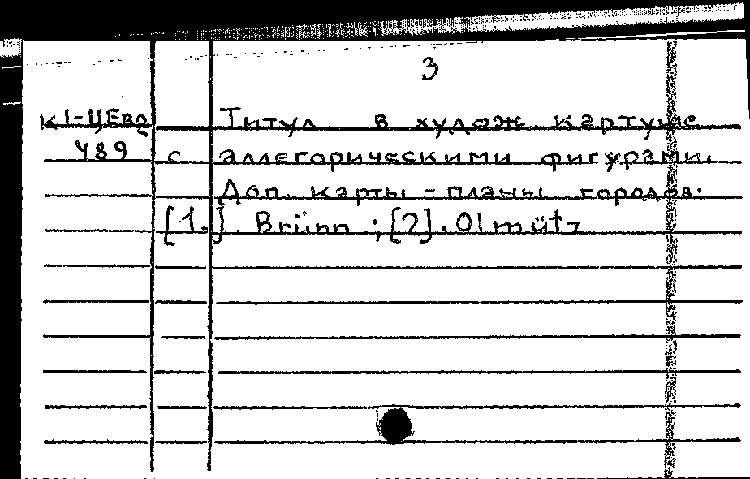 3
К1-ЦЕва Титул в худож картуше
489 с аллегорическими фигурами.
Доп. карты - планы городов:
[1.] Brünn ; [2]. Olmütz